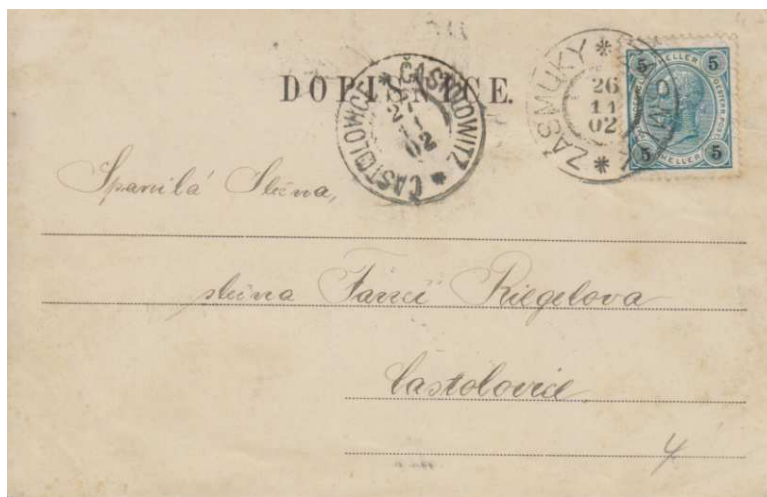 DOPISNICE.
ČASTOLOWITZ * ČASTOLOWICE *
27
11
02
ZÁSMUKY *
26
11
02
5 HELLER 5
5 HELLER 5
Spanilá Slečna,
slečna Riegelova
Častolovice